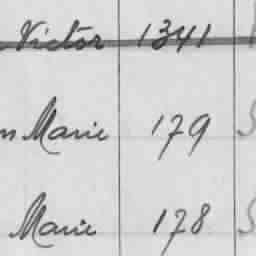 Victor 1341
Marie 179
Marie 178